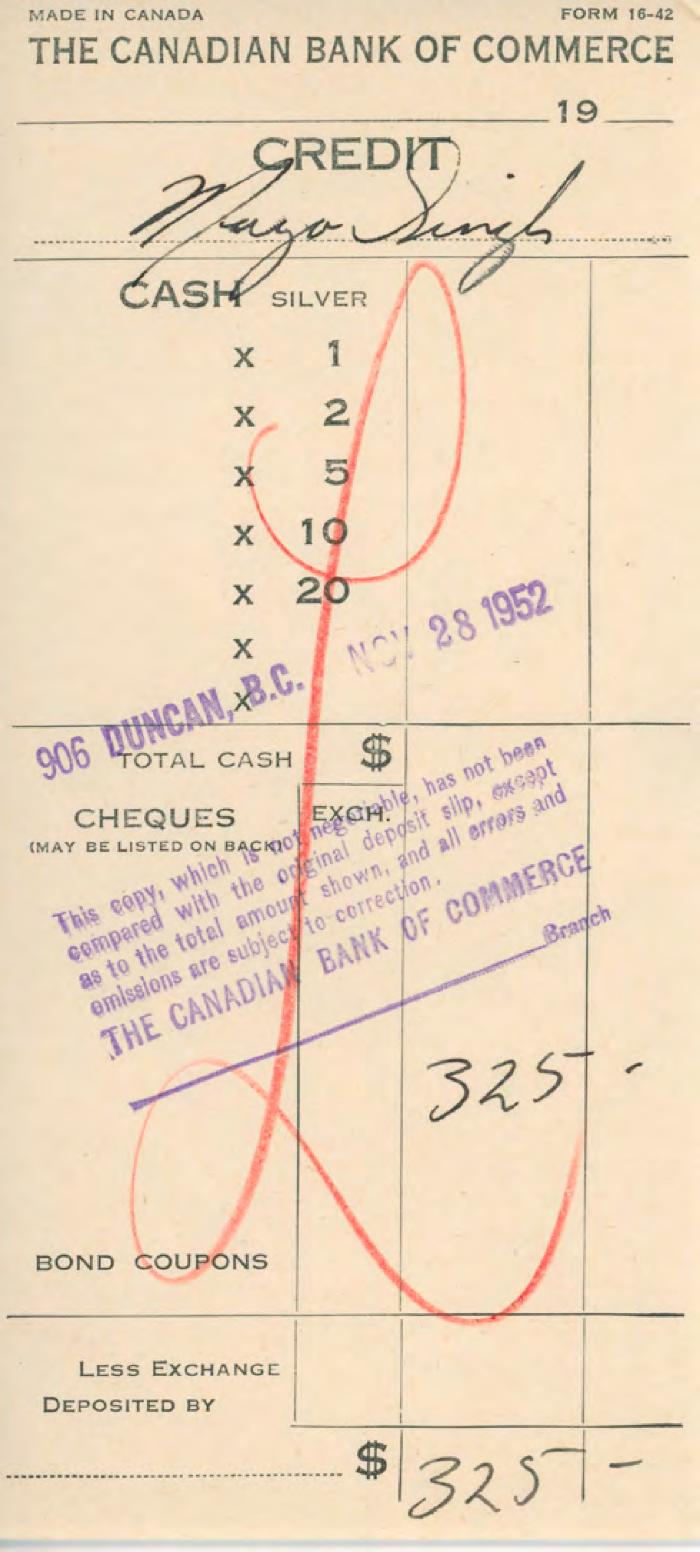 MADE IN CANADA FORM 16-42
THE CANADIAN BANK OF COMMERCE
19
CREDIT
Mayo Singh
CASH SILVER
X 1
X 2
X 5
X 10
X 20
X
X
906 DUNCAN, B.C. NOV 28 1952
TOTAL CASH $
CHEQUES EXCH.
(MAY BE LISTED ON BACK)
This copy, which is not negotiable, has not been
compared with the original deposit slip, except
as to the total amount shown, and all errors and
omissions are subject to correction.
THE CANADIAN BANK OF COMMERCE
Branch
325 -
BOND COUPONS
LESS EXCHANGE
DEPOSITED BY
$ 325 -